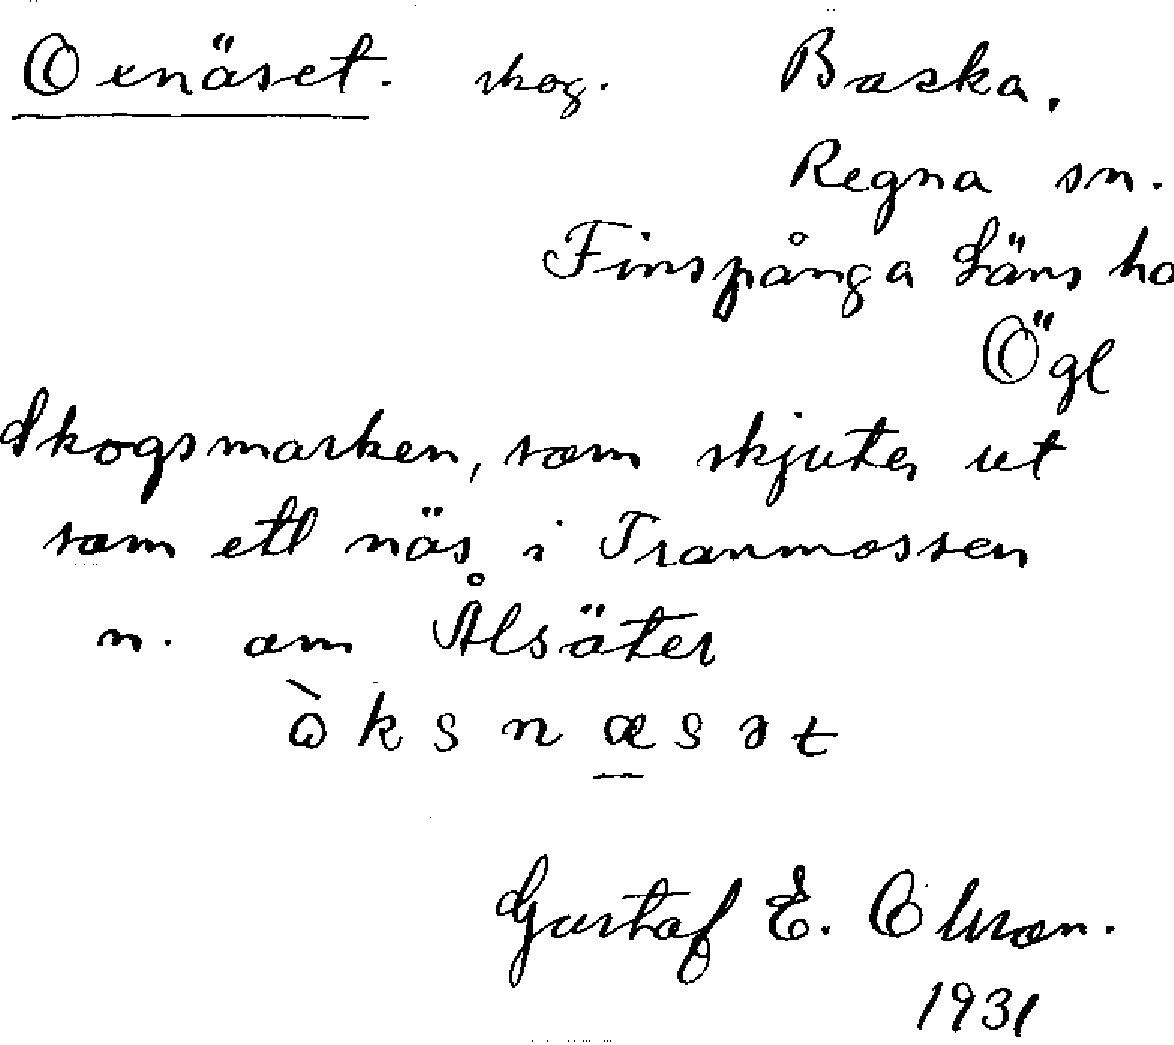 Oxnäset. skog. Baska.
Regna sn.
Finspånga Läns hd
Ögl
Skogsmarken, som skjuter ut
som ett näs i Tranmossen
n. om Ålsäter
ò k s n æ s ə t
Gustaf E. Olsson.
1931